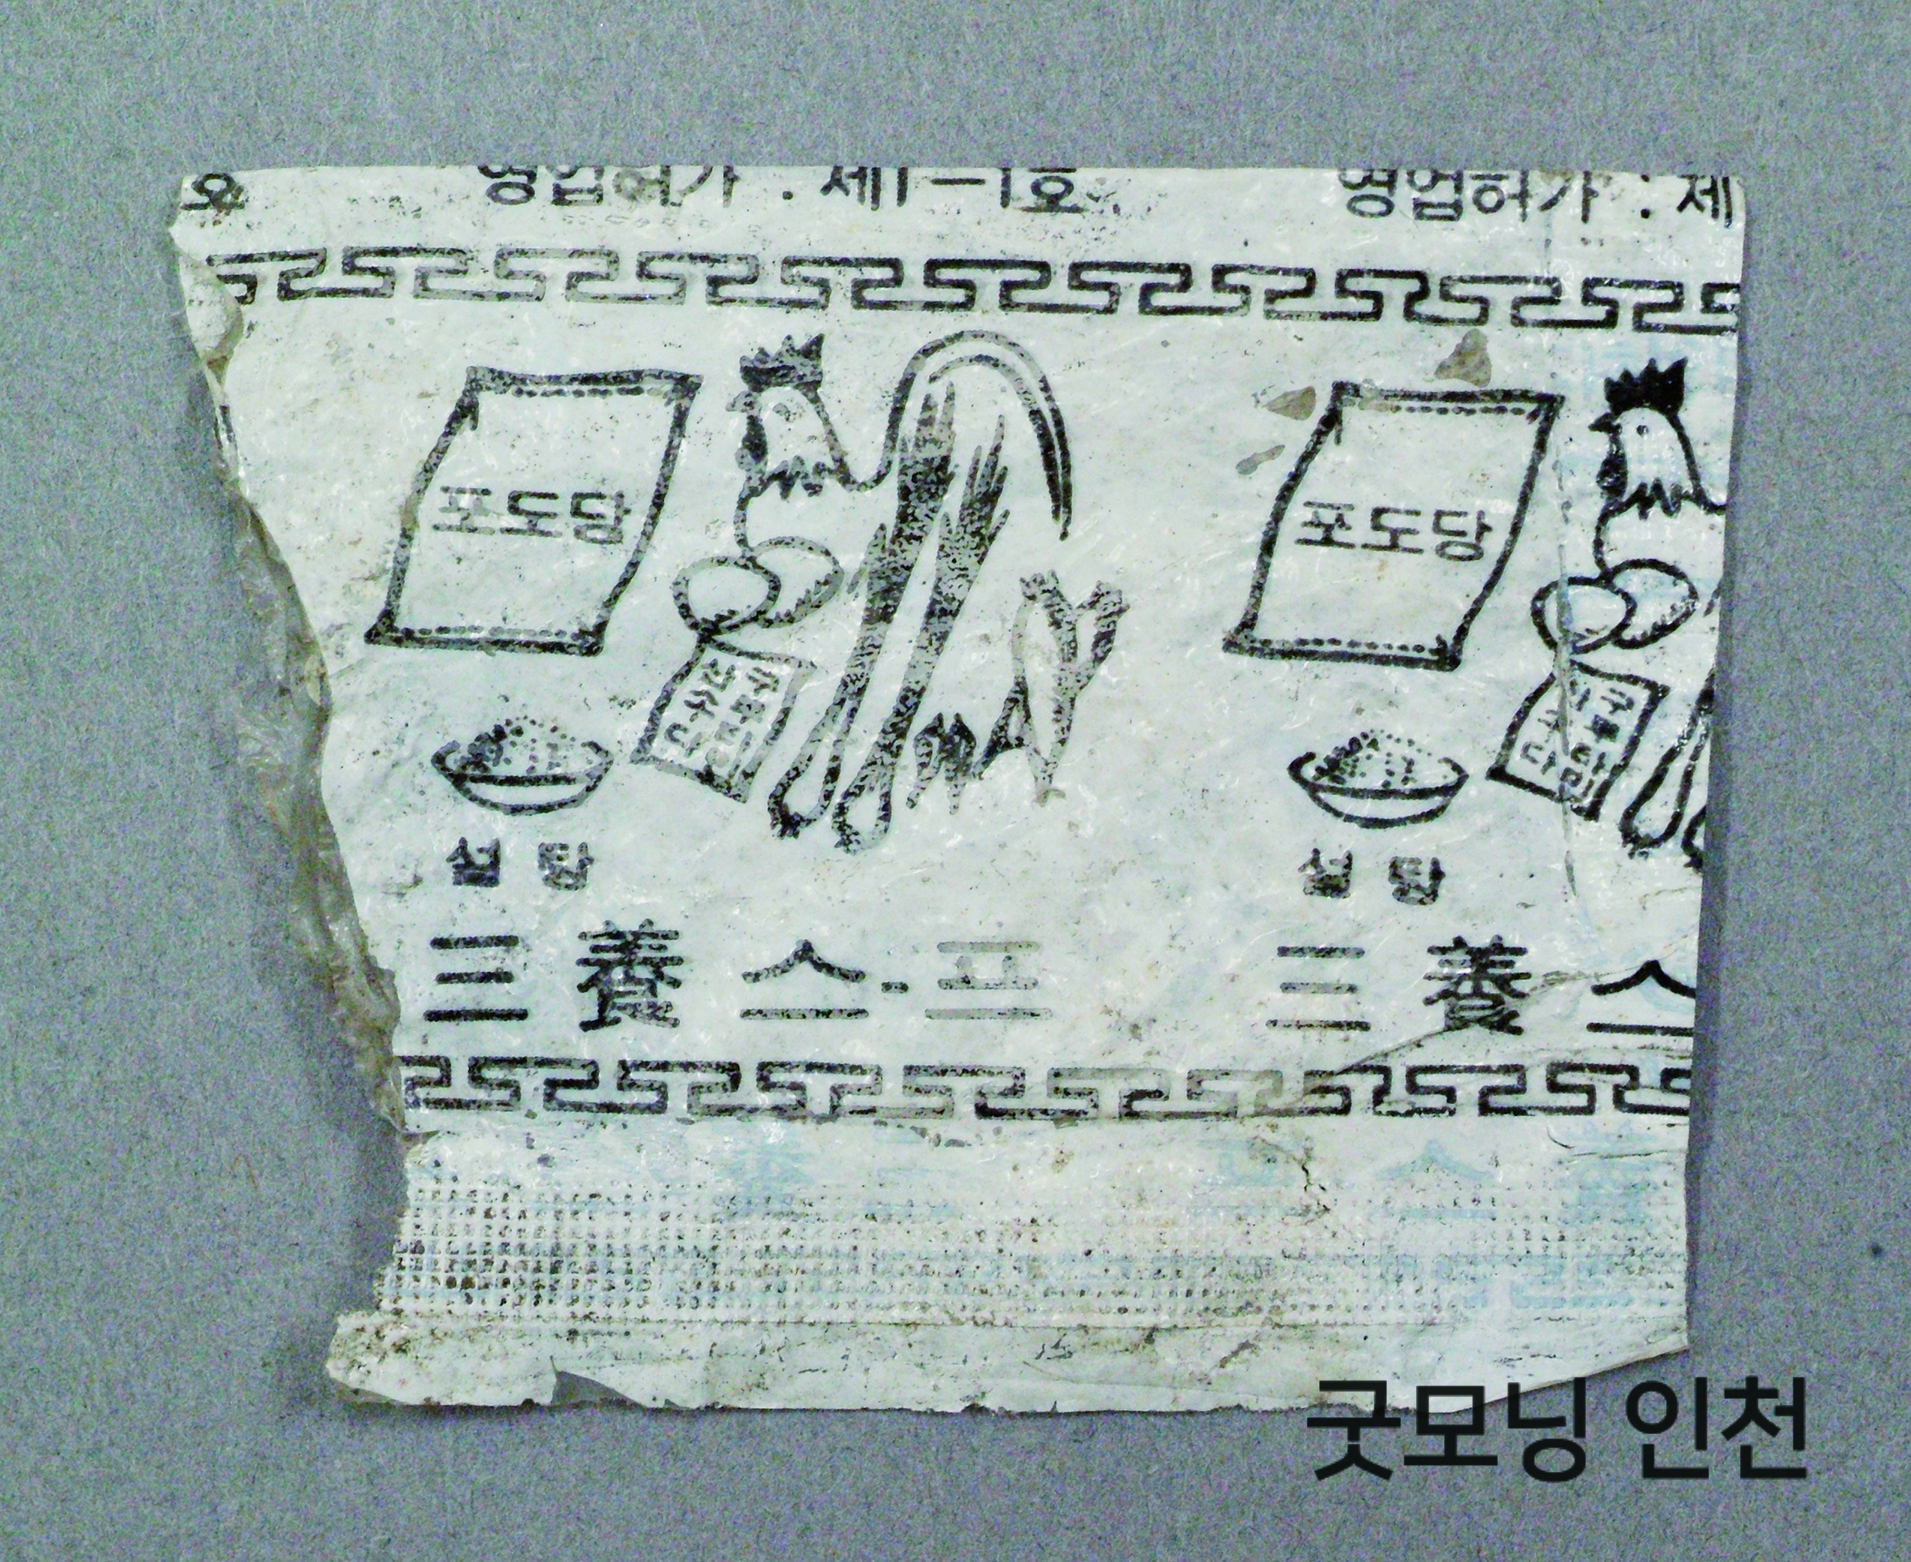 호 영업허가 : 제1-1호 영업허가 : 제
포도당 포도당
설탕 설탕
三養스-프 三養스
굿모닝 인천